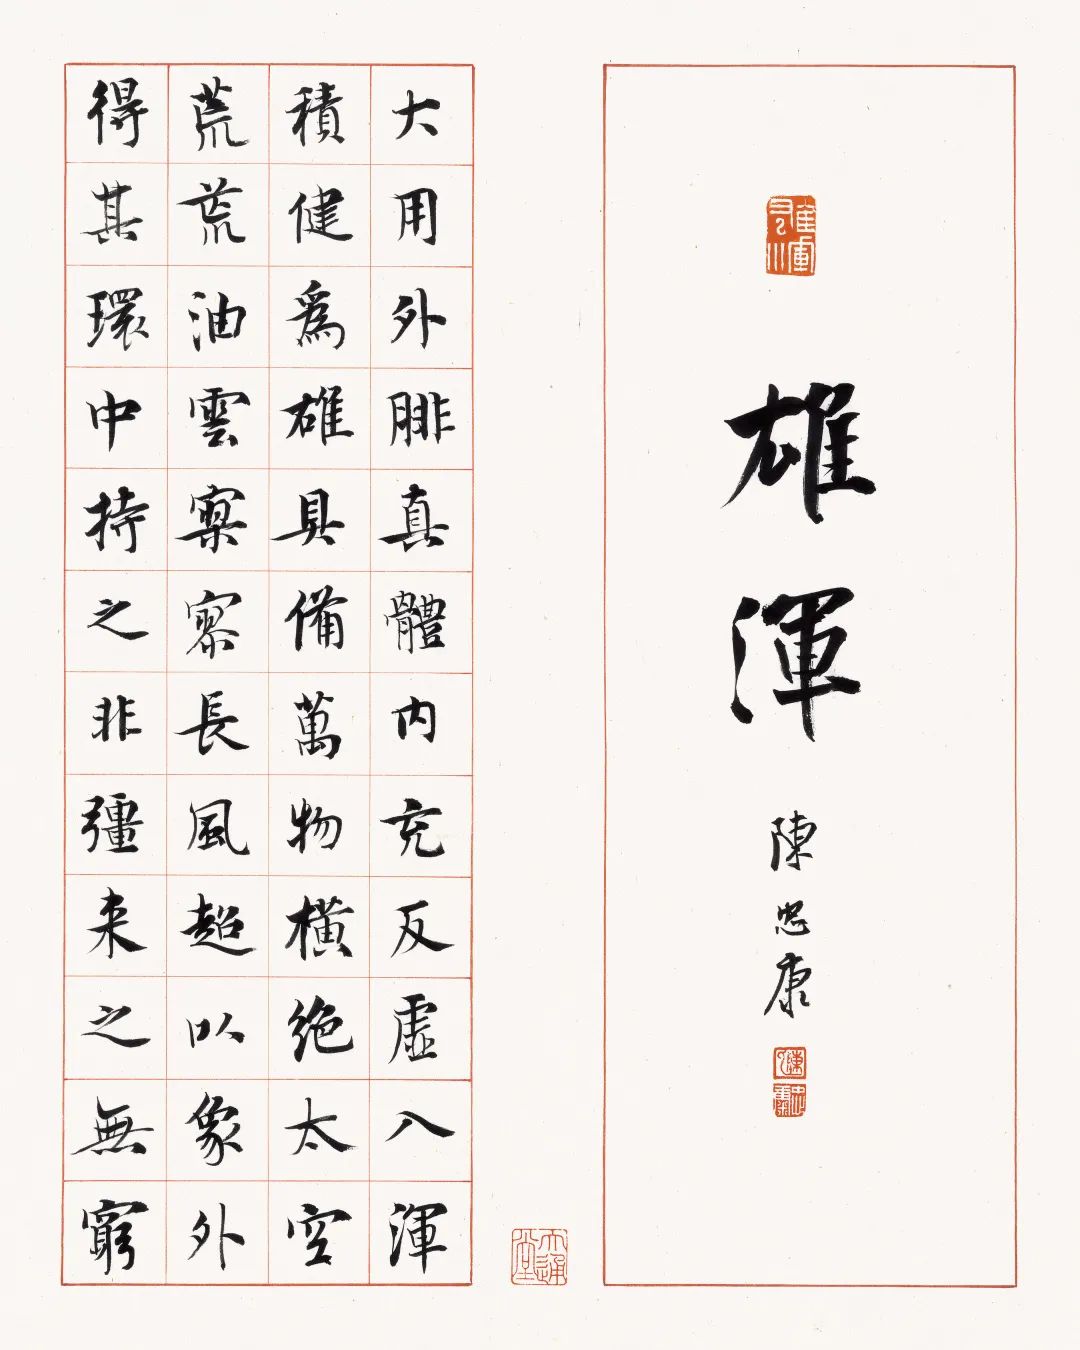 雄渾
陳忠康
大用外腓真體内充反虛入渾
積健爲雄具備萬物横絶太空
荒荒油雲寥寥長風超以象外
得其環中持之非彊来之無窮